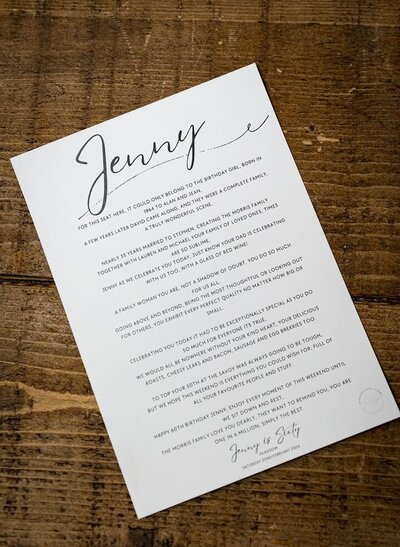 Jenny
FOR THIS SEAT HERE, IT COULD ONLY BELONG TO THE BIRTHDAY GIRL, BORN IN
1964 TO ALAN AND JEAN,
A FEW YEARS LATER DAVID CAME ALONG, AND THEY WERE A COMPLETE FAMILY,
A TRULY WONDERFUL SCENE.
NEARLY 35 YEARS MARRIED TO STEPHEN, CREATING THE MORRIS FAMILY
TOGETHER WITH LAUREN AND MICHAEL YOUR FAMILY OF LOVED ONES, TIMES
ARE SO SUBLIME,
JENNY AS WE CELEBRATE YOU TODAY, JUST KNOW YOUR DAD IS CELEBRATING
WITH US TOO, WITH A GLASS OF RED WINE!
A FAMILY WOMAN YOU ARE, NOT A SHADOW OF DOUBT, YOU DO SO MUCH
FOR US ALL,
GOING ABOVE AND BEYOND, BEING THE MOST THOUGHTFUL OR LOOKING OUT
FOR OTHERS, YOU EXHIBIT EVERY PERFECT QUALITY NO MATTER HOW BIG OR
SMALL.
CELEBRATING YOU TODAY IT HAD TO BE EXCEPTIONALLY SPECIAL AS YOU DO
SO MUCH FOR EVERYONE ITS TRUE,
WE WOULD ALL BE NOWHERE WITHOUT YOUR KIND HEART, YOUR DELICIOUS
ROASTS, CHEESY LEAKS AND BACON, SAUSAGE AND EGG BREKKIES TOO.
TO TOP YOUR 50TH AT THE SAVOY WAS ALWAYS GOING TO BE TOUGH,
BUT WE HOPE THIS WEEKEND IS EVERYTHING YOU COULD WISH FOR, FULL OF
ALL YOUR FAVOURITE PEOPLE AND STUFF.
HAPPY 60TH BIRTHDAY JENNY, ENJOY EVERY MOMENT OF THIS WEEKEND UNTIL
WE SIT DOWN AND REST,
THE MORRIS FAMILY LOVE YOU DEARLY, THEY WANT TO REMIND YOU, YOU ARE
ONE IN A MILLION, SIMPLY THE BEST.
Jenny is Sixty
SATURDAY 22ND FEBRUARY 2024